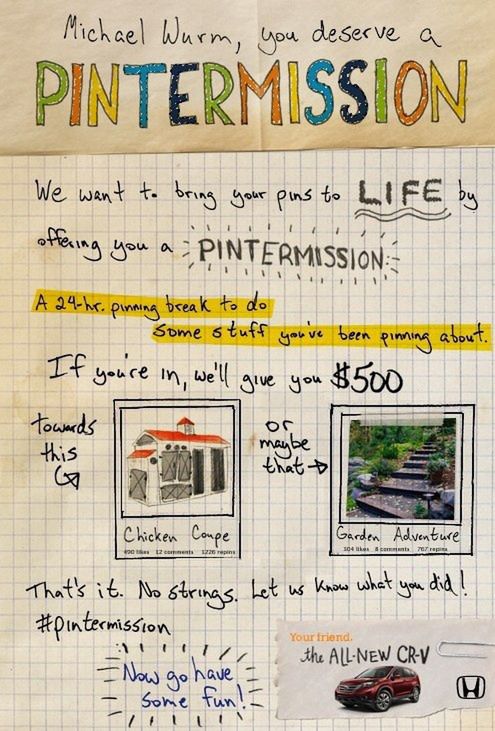 Michael Wurm, you deserve a
PINTERMISSION
We want to bring your pins to LIFE by
offering you a PINTERMISSION:
A 24-hr. pinning break to do
some stuff you've been pinning about.
If you're in, we'll give you $500
towards
this
or
maybe
that
Chicken Coupe
490 likes 12 comments 1226 repins
Garden Adventure
304 likes 8 comments 767 repins
That's it. No strings. Let us know what you did!
#pintermission
Now go have
some fun!
Your friend,
the ALL-NEW CR-V